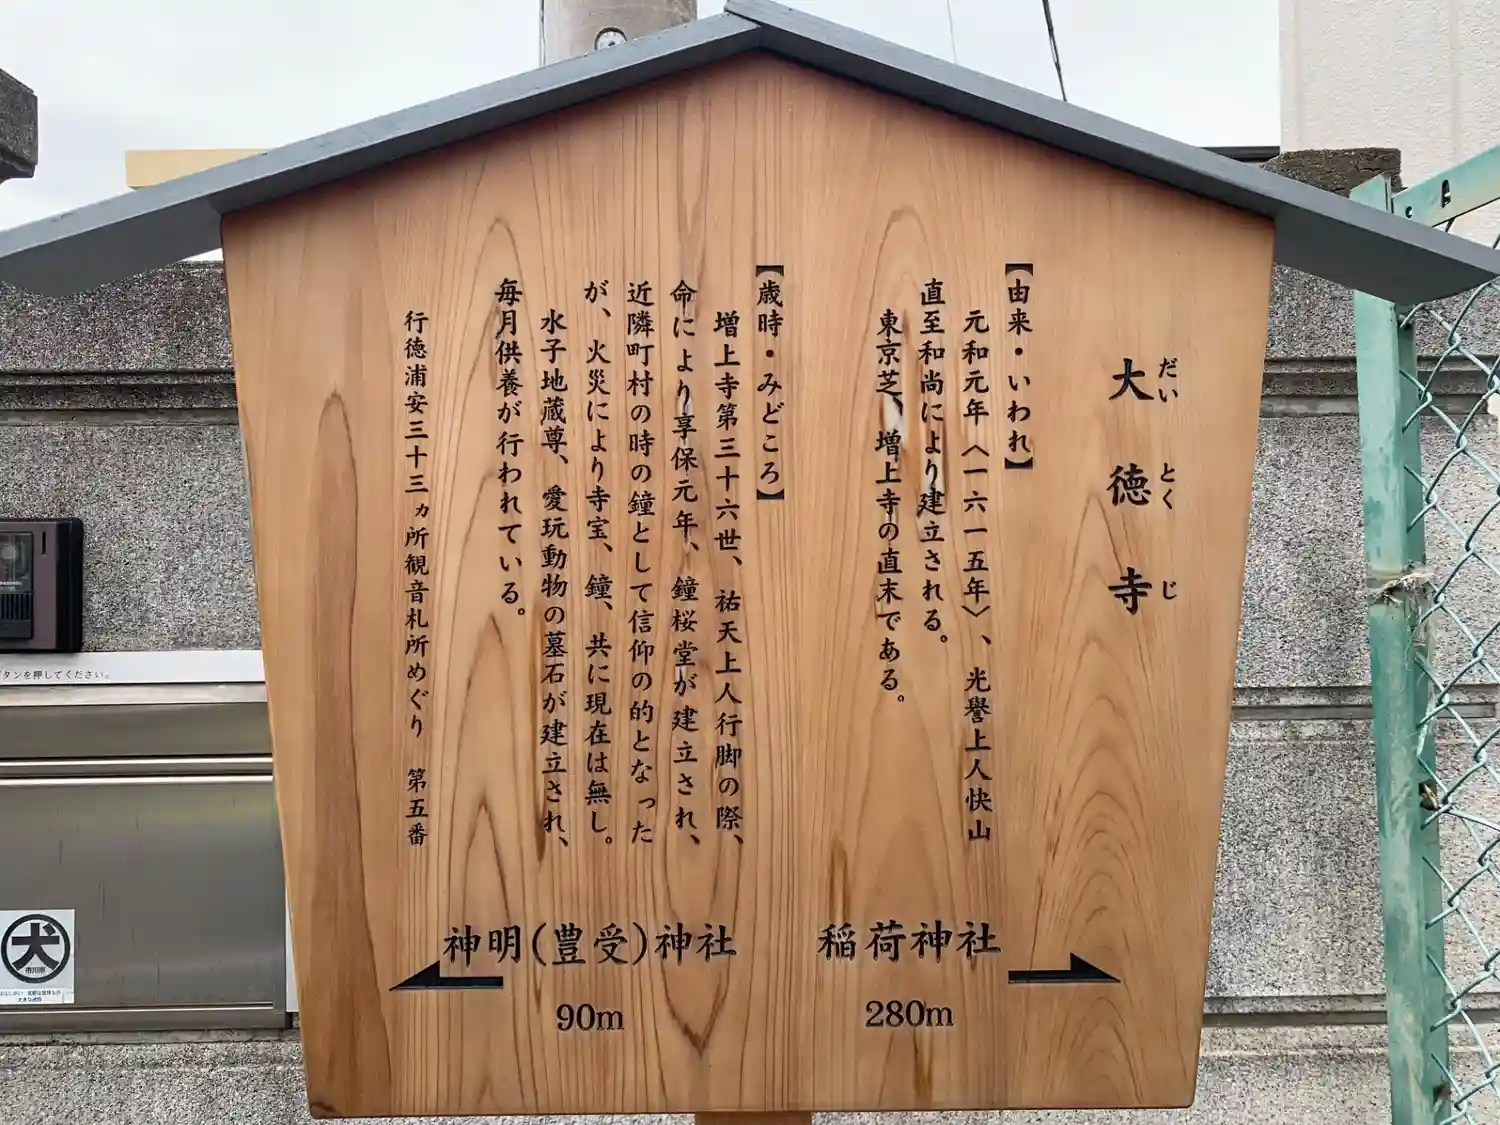 大徳寺
だいとくじ
【由来・いわれ】
元和元年〈一六一五年〉、光誉上人快山
直至和尚により建立される。
東京芝、増上寺の直末である。
【歳時・みどころ】
増上寺第三十六世、祐天上人行脚の際、
命により享保元年、鐘桜堂が建立され、
近隣町村の時の鐘として信仰の的となった
が、火災により寺宝、鐘、共に現在は無し。
水子地蔵尊、愛玩動物の墓石が建立され、
毎月供養が行われている。
行徳浦安三十三ヵ所観音札所めぐり 第五番
稲荷神社
280m
神明(豊受)神社
90m
タンを押してください。
犬
市川市